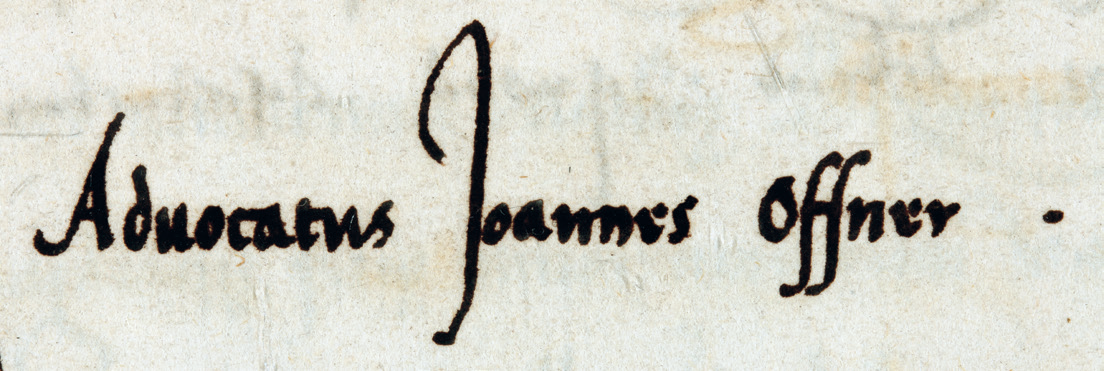 Aduocatus Joannes Offner .